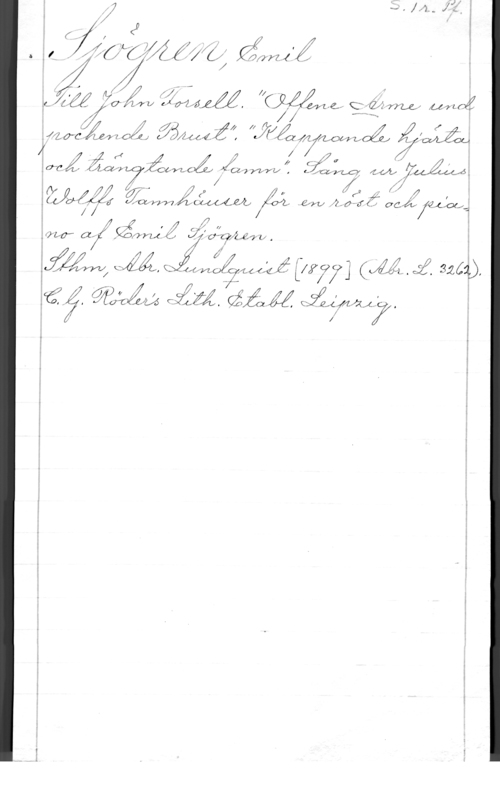 S. 1 r. Pf.
Sjögren, Emil
Till John Forsell. "Offene Arme und
pochende Brust". "Klappande hjärta
och trängtande famn". Sång ur Julius
Wolffs Tannhäuser för en röst och pia=
no af Emil Sjögren.
Sthm, Abr. Lundquist [1899] (Abr. L. 3262).
C. G. Röder's Lith. Etabl. Leipzig.